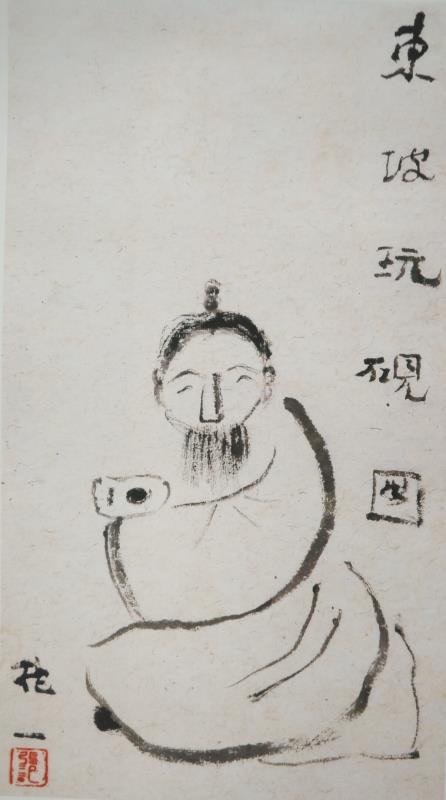 東坡玩硯圖
一